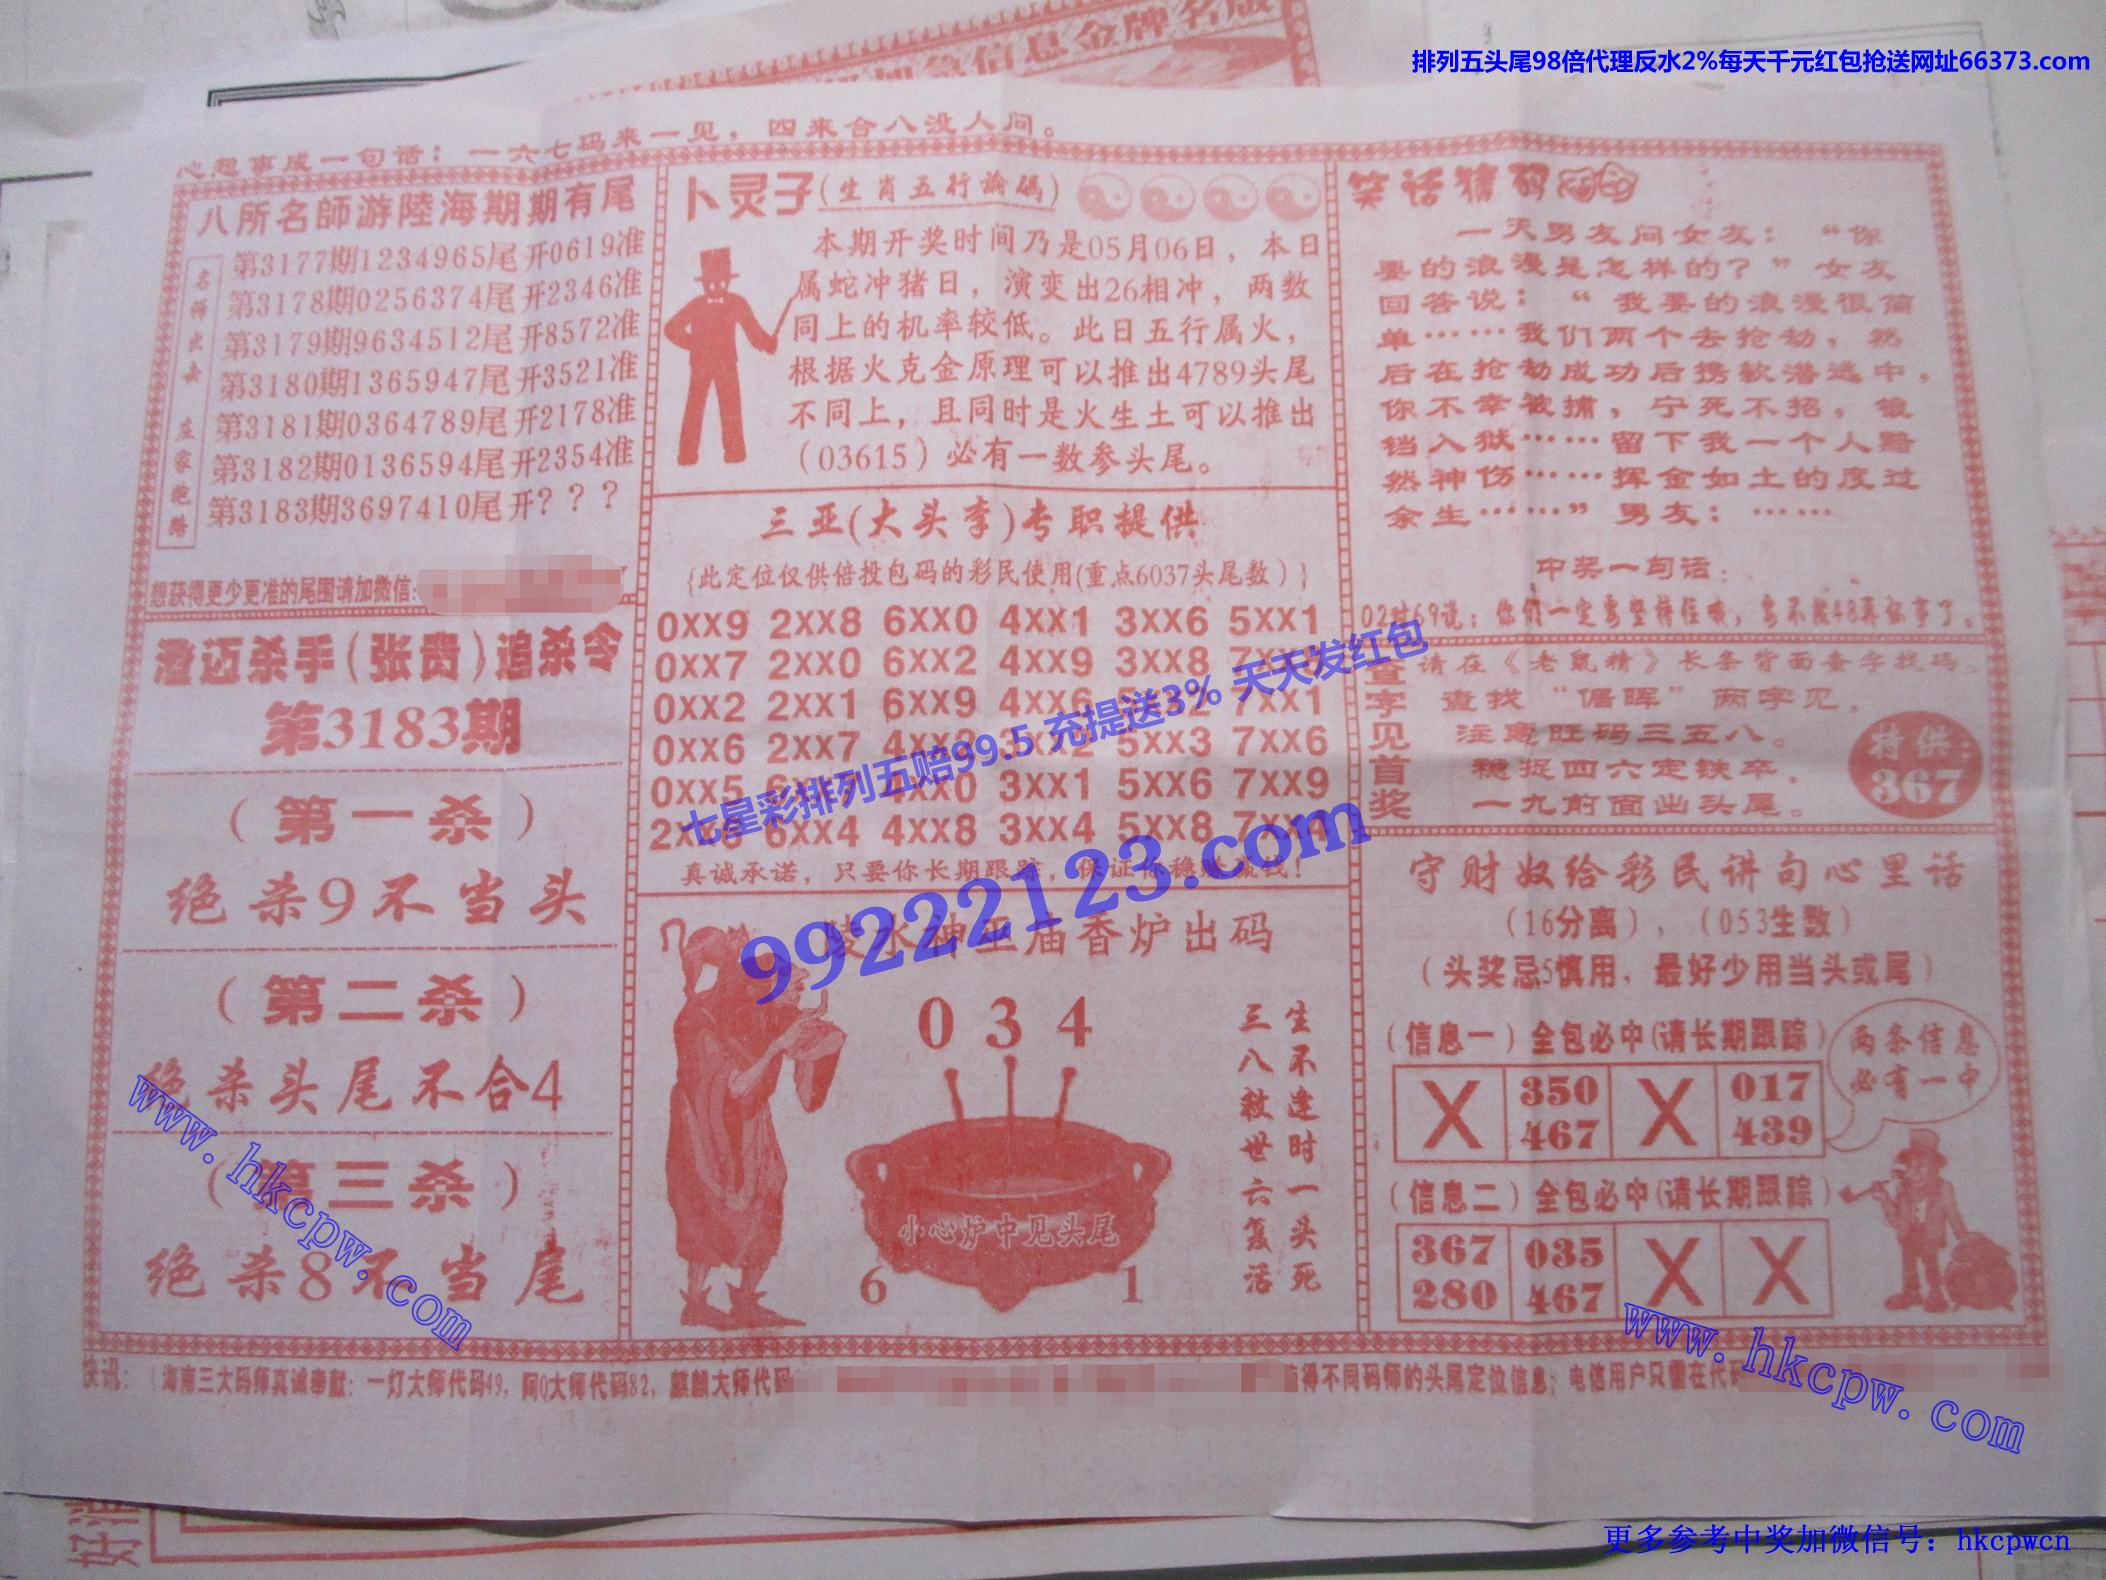 排列五头尾98倍代理反水2%每天千元红包抢送网址66373.com
信息金牌名版
心想事成一句话：一六七码来一见，四来合八没人问。
八所名師游陸海期期有尾
名師出去 庄家抱賠
第3177期1234965尾开0619准
第3178期0256374尾开2346准
第3179期9634512尾开8572准
第3180期1365947尾开3521准
第3181期0364789尾开2178准
第3182期0136594尾开2354准
第3183期3697410尾开？？？
想获得更少更准的尾围请加微信:
澄迈杀手(张贵)追杀令
第3183期
（第一杀）
绝杀9不当头
（第二杀）
绝杀头尾不合4
（第三杀）
绝杀8不当尾
卜灵子(生肖五行論碼)
本期开奖时间乃是05月06日，本日
属蛇冲猪日，演变出26相冲，两数
同上的机率较低。此日五行属火，
根据火克金原理可以推出4789头尾
不同上，且同时是火生土可以推出
（03615）必有一数参头尾。
三亚(大头李)专职提供
{此定位仅供倍投包码的彩民使用(重点6037头尾数）}
0XX9 2XX8 6XX0 4XX1 3XX6 5XX1
0XX7 2XX0 6XX2 4XX9 3XX8
0XX2 2XX1 6XX9 4XX6 7XX1
0XX6 2XX7 5XX3 7XX6
0XX5 4XX0 3XX1 5XX6 7XX9
2XX6 6XX4 4XX8 3XX4 5XX8 7XX4
真诚承诺，只要你长期跟踪，保证你稳赚赢钱！
七星彩排列五赔99.5 充提送3% 天天发红包
99222123.com
陵水神巫庙香炉出码
0 3 4
生不逢时一头死
三八救世六复活
小心炉中见头尾
6 1
笑话猜码
一天男友问女友：“你
要的浪漫是怎样的？”女友
回答说：“我要的浪漫很简
单……我们两个去抢劫，然
后在抢劫成功后携款潜逃中，
你不幸被捕，宁死不招，锒
铛入狱……留下我一个人黯
然神伤……挥金如土的度过
余生……”男友：……
中奖一句话：
02对69说：你们一定要坚持住哦，要不然48再坏事了。
查字见首奖
请在《老鼠精》长条背面查字找码
查找“倨晖”两字见，
注意旺码三五八。
稳捉四六定铁卒，
一九前面出头尾。
特供：
367
守财奴给彩民讲句心里话
（16分离），（053生数）
（头奖忌5慎用，最好少用当头或尾）
（信息一）全包必中(请长期跟踪）
X 350 467 X 017 439
两条信息
必有一中
（信息二）全包必中(请长期跟踪）
367 280 035 467 X X
快讯：（海南三大码师真诚奉献：一灯大师代码49，阿Q大师代码82，麒麟大师代码
得不同码师的头尾定位信息；电信用户只需在代码
www.hkcpw.com
www.hkcpw.com
更多参考中奖加微信号：hkcpwcn